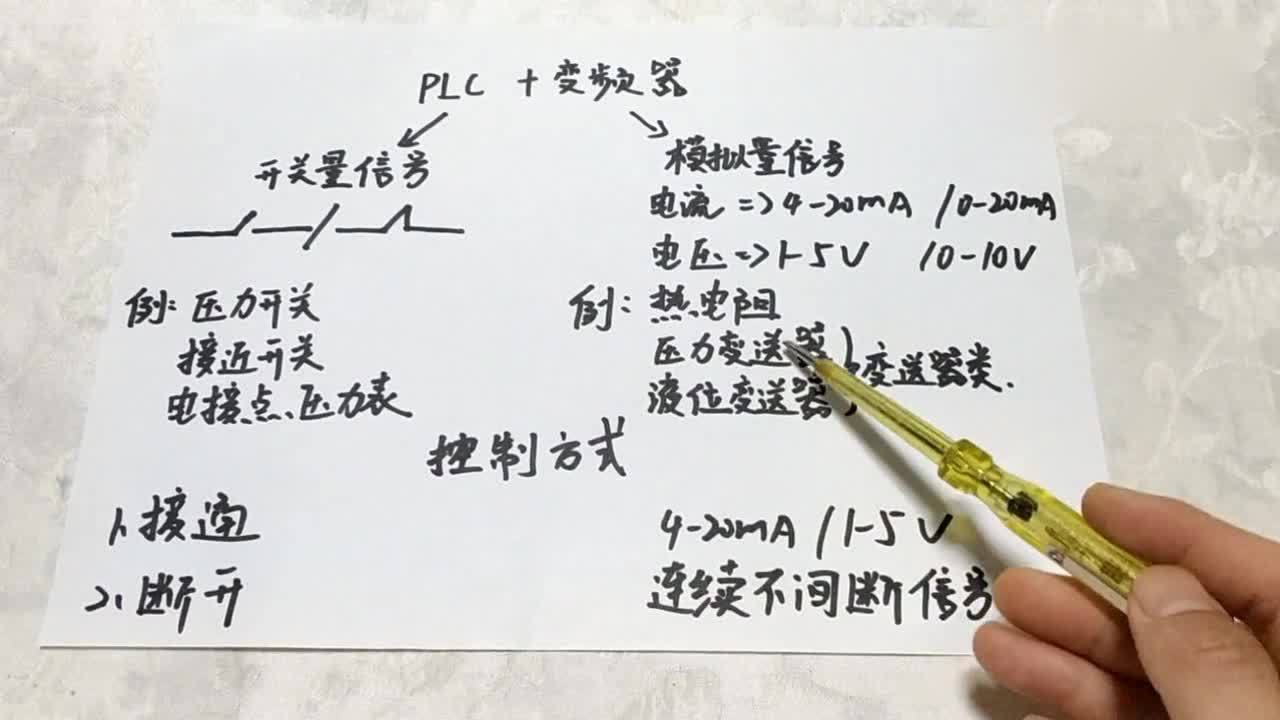 PLC + 变频器
开关量信号
模拟量信号
电流 => 4-20mA /0-20mA
电压 => 1-5V /0-10V
例: 压力开关
接近开关
电接点、压力表
例: 热电阻
压力变送器
液位变送器
变送器类.
控制方式
1、接通
2、断开
4-20mA /1-5V
连续不间断信号